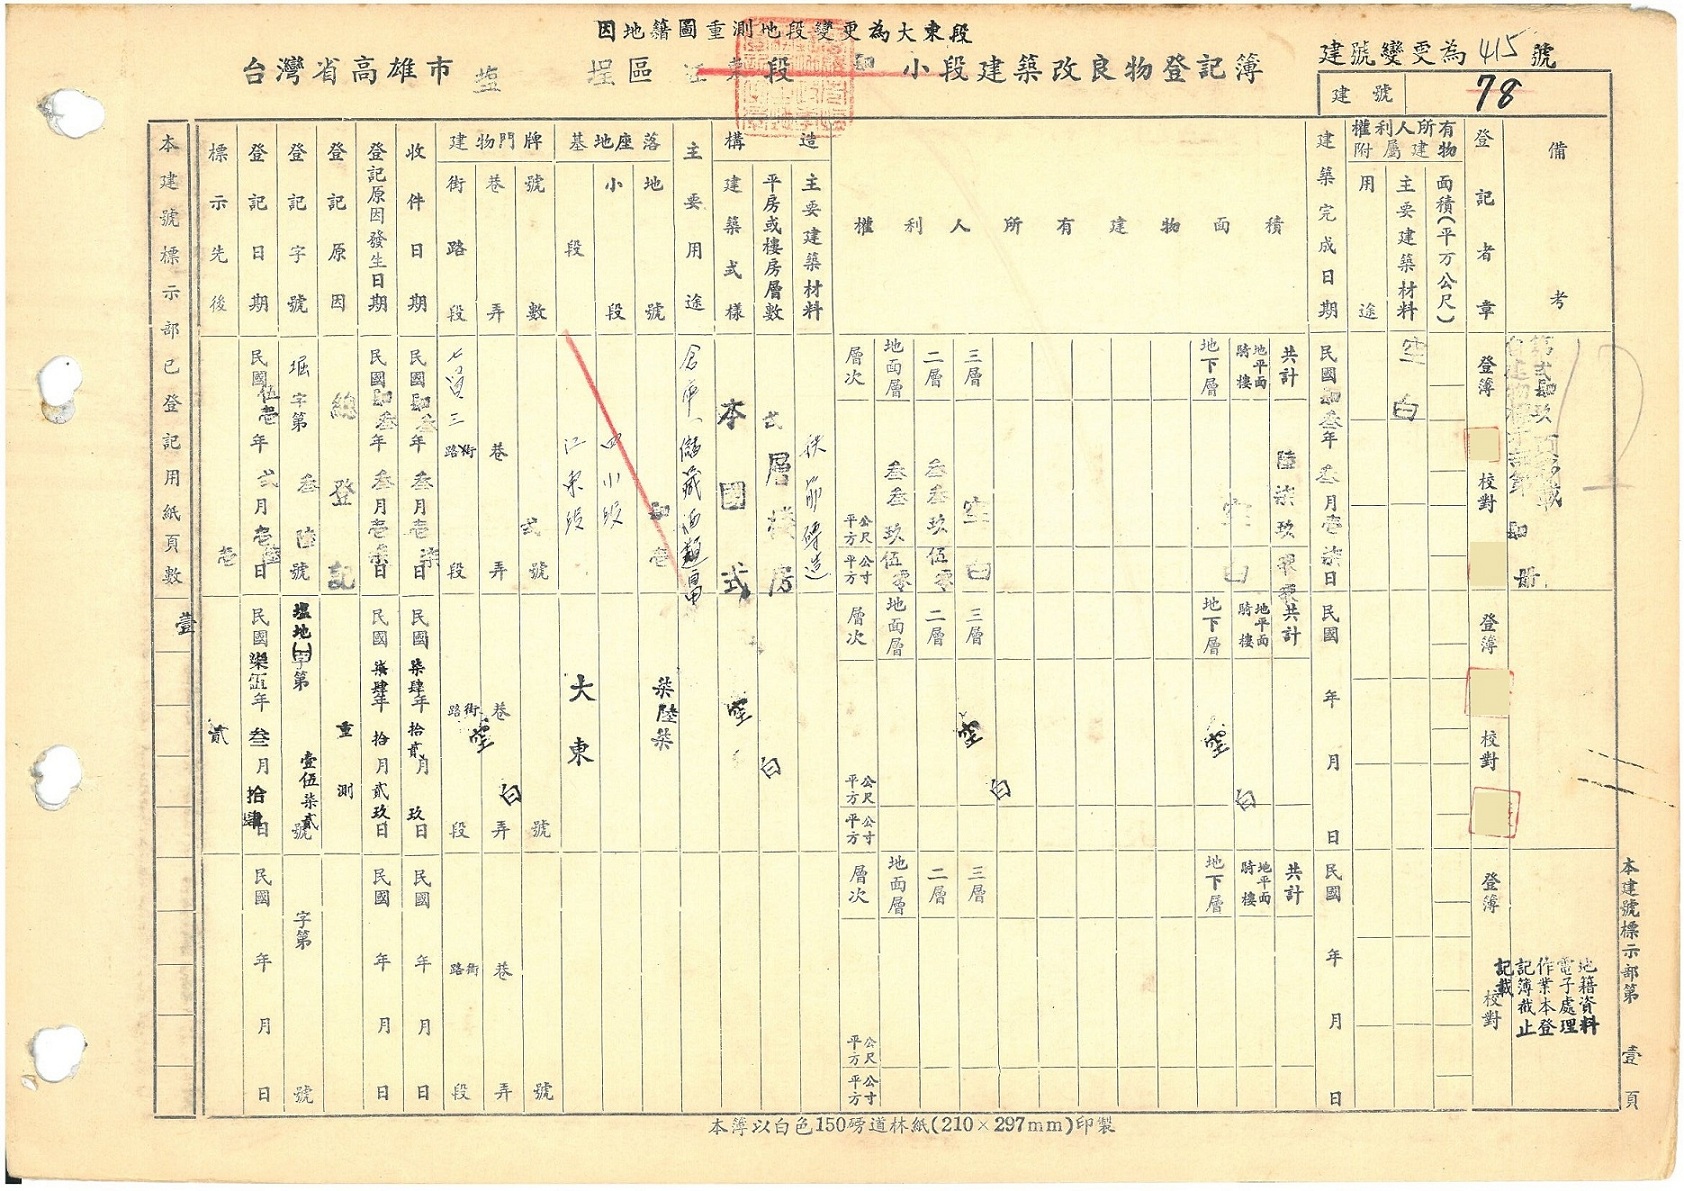 因地籍圖重測地段變更為大東段
台灣省高雄市 塩 埕區 江東段 四 小段建築改良物登記簿
建號變更為415號
建號 78
本建號標示部已登記用紙頁數 壹
標示先後
登記日期
登記字號
登記原因
登記原因發生日期
收件日期
建物門牌
街路段
巷弄
號數
基地座落
段
小段
地號
主要用途
構造
建築式樣
平房或樓房層數
主要建築材料
權利人所有建物面積
建築完成日期
權利人所有附屬建物
用途
主要建築材料
面積(平方公尺)
登記者章
備考
壹
民國伍壹年貳月壹陸日
堀字第叁陸號
總登記
民國肆叁年叁月壹柒日
民國肆叁年叁月壹柒日
七賢三路街段
巷弄
貳號
江東段
四小段
倉庫儲藏酒麵
本國式
貳層樓房
磚造
層次 平方公尺 平方公寸
地面層 叁叁玖 伍零
二層 叁叁玖 伍零
三層 空白
地下層
地平面騎樓 空白
共計 陸柒玖
民國肆叁年叁月壹柒日
空白
登簿 校對
第貳肆玖頁
肆册
貳
民國柒伍年叁月拾肆日
塩地(一)字第壹伍柒貳號
重測
民國柒肆年拾月貳玖日
民國柒肆年拾貳月玖日
路街段 巷弄 號
空白
大東
柒陸柒
空白
層次 平方公尺 平方公寸
地面層
二層
三層
空白
地下層
地平面騎樓
共計
空白
民國 年 月 日
登簿 校對
民國 年 月 日
字第 號
民國 年 月 日
民國 年 月 日
路街段 巷弄 號
層次 平方公尺 平方公寸
地面層
二層
三層
地下層
地平面騎樓
共計
民國 年 月 日
登簿 校對
地籍資料
電子處理
作業本登
記簿截止
記載
本建號標示部第壹頁
本簿以白色150磅道林紙(210×297mm)印製